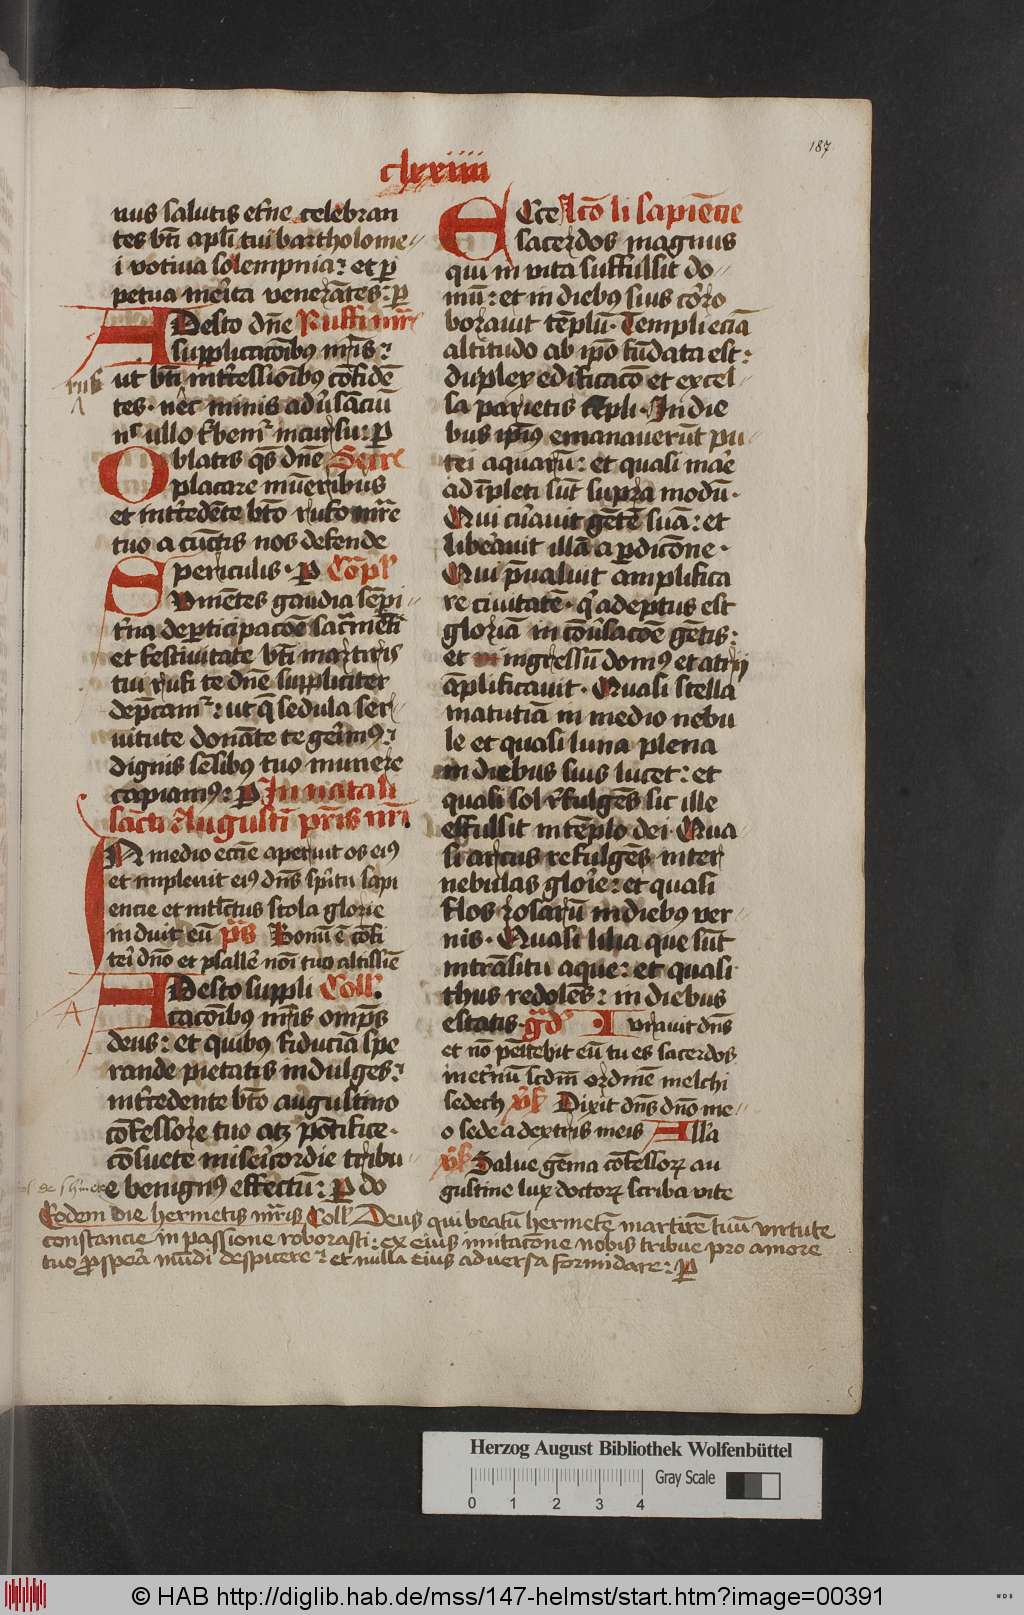 187
clxxiiii
nus salutis et͛ne celebran
tes bt̄i apl̄i tui bartholome⸗
i votiua solempnia: et ꝑ
petua mer̄ita veneran̄tes: ꝑ
ADesto dn̄e Ruffi mr̄is
supplicaco͞ibus nr̄is:
ut bt̄i int͛cessio͞ibus co͞fide͞
tes· nec minis adu͛sanciu͞
nᶜ ullo t͛bem᷑ incursu: ꝑ
Oblatis qs̄ dn̄e Secre
placare mu͞eribus
et int͛cede͞te bt̄o rufo mr̄e
tuo a cu͞ctis nos defende
periculis· ꝑ Co͞pl᷑
Sume͞tes gaudia se͞pi⸗
t͛na de ꝑticipaco͞e sacͣme͞ti
et festiuitate bt̄i martiris
tui rufi te dn̄e suppliciter
dep̄cam᷑: ut q̄ sedula ser⸗
uitute dona͞te te gerimꝰ:
dignis se͞sibꝰ tuo munere
capiamꝰ: ꝑ In natali
san̄cti Augustī pr̄is nr̄i
IN medio ecc̄ie aperuit os eiꝰ
et impleuit eiꝰ dn̄s sp̄itu sapi
encie et int̄lc̄tus stola glorie
induit eu͞ ps̄ Bonu͞ e͞ co͞fi
teri dn̄o et psalle͛ no͞i tuo altissi͞e
ADesto suppli Coll᷑
caco͞ibus nr̄is omp̄s
deus: et quibꝰ fiducia͞ spe
rande pietatis indulges:
int͛cedente bt̄o augustino
co͞fessore tuo atꝫ po͞tifice·
co͞suete mis͛icordie tribu⸗
e benignꝰ effectu͞: ꝑ do
Ecce Lc̄o li sapie͞cie
sacerdos magnus
qui in vita suffulsit do⸗
mu͞: et in diebꝰ suis co͛ro
borauit te͞plu͞· Templi ecia͞
altitudo ab ip̄o fu͞data est:
duplex edificaco͞ et excel⸗
sa parietis te͞pli· In die
bus ip̄iꝰ emanaueru͞t pu⸗
tei aquaru͞: et quasi mar̄e
adi͞pleti su͞t supra modu͞·
Qui cu͛auit ge͞te͞ sua͞: et
liberauit illa͞ a ꝑdico͞ne·
Qui p̄ualuit amplifica
re ciuitate͞· qͥ adeptus est
gloria͞ in co͞u͛saco͞e ge͞tis:
et ingressu͞ domꝰ et atrij
a͞plificauit· Quasi stella
matuti͞a in medio nebu
le et quasi luna plena
in diebus suis lucet: et
quasi sol r͛fulge͞s sic ille
effulsit in te͞plo dei· Qua⸗
si arcus refulge͞s inter
nebulas glor̄ie: et quasi
flos rosaru͞ in diebꝰ ver⸗
nis· Quasi lilia que su͞t
in tra͞situ aque: et quasi
thus redole͞s: in diebus
estatis· gͣdͬ Iurauit dn̄s
et no͞ pe͞itebit eu͞ tu es sacerdos
in et͛nu͞ scd̄m ordine͞ melchi
sedech v͛s Dixit dn̄s dn̄o me⸗
o sede a dextris meis All᷑a
v͛s Salue ge͞ma co͞fessoꝝ au
gustine lux doctoꝝ scriba vite
Eodem die hermetis mr̄is Coll᷑ Deus qui beatu͞ hermete͞ martire͞ tuu͞ virtute
constancie in passione roborasti: ex eius imitaco͞ne nobis tribue pro amore
tuo ꝓspera mu͞di despicere: et nulla eius aduersa formidare: ꝑ
Herzog August Bibliothek Wolfenbüttel
Gray Scale
0 1 2 3 4
© HAB http://diglib.hab.de/mss/147-helmst/start.htm?image=00391